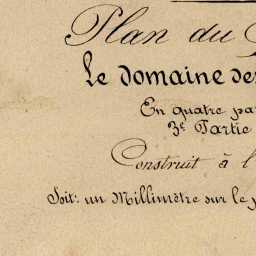 Plan du
Le Domaine des
En quatre par
3e Partie
Construit à l
Soit: un Millimètre sur le